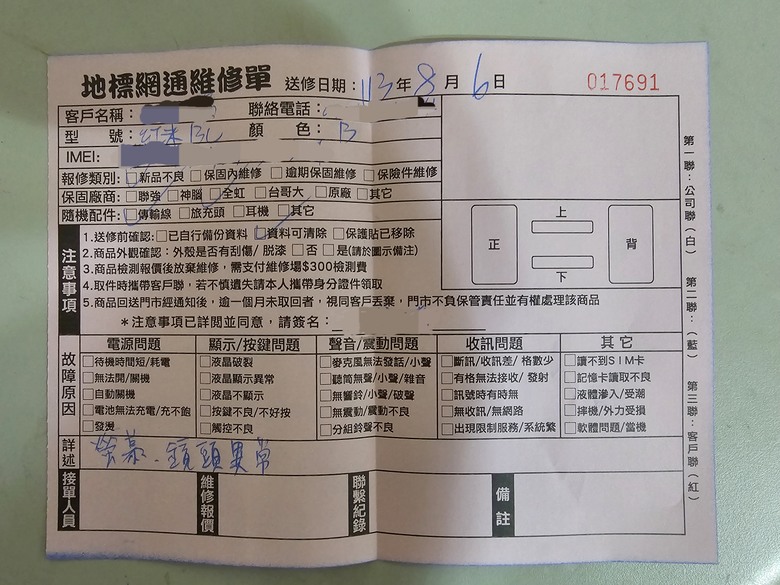 地標網通維修單 送修日期：113年8月6日 017691
客戶名稱： 聯絡電話：
型 號：紅米13C 顏 色：B
IMEI:
報修類別：□新品不良 □保固內維修 □逾期保固維修 □保險件維修
保固廠商：□聯強 □神腦 □全虹 □台哥大 □原廠 □其它
隨機配件：□傳輸線 □旅充頭 □耳機 □其它
上
正
背
下
注意事項
1.送修前確認：□已自行備份資料 □資料可清除 □保護貼已移除
2.商品外觀確認：外殼是否有刮傷/脫漆 □否 □是(請於圖示備注)
3.商品檢測報價後放棄維修，需支付維修場$300檢測費
4.取件時攜帶客戶聯，若不慎遺失請本人攜帶身分證件領取
5.商品回送門市經通知後，逾一個月未取回者，視同客戶丟棄，門市不負保管責任並有權處理該商品
＊注意事項已詳閱並同意，請簽名：
故障原因
電源問題 顯示/按鍵問題 聲音/震動問題 收訊問題 其它
□待機時間短/耗電 □液晶破裂 □麥克風無法發話/小聲 □斷訊/收訊差/格數少 □讀不到SIM卡
□無法開/關機 □液晶顯示異常 □聽筒無聲/小聲/雜音 □有格無法接收/發射 □記憶卡讀取不良
□自動關機 □液晶不顯示 □無響鈴/小聲/破聲 □訊號時有時無 □液體滲入/受潮
□電池無法充電/充不飽 □按鍵不良/不好按 □無震動/震動不良 □無收訊/無網路 □摔機/外力受損
□發燙 □觸控不良 □分組鈴聲不良 □出現限制服務/系統繁 □軟體問題/當機
詳述 螢幕、鏡頭異常
接單人員 維修報價 聯繫紀錄 備註
第一聯：公司聯(白) 第二聯：(藍) 第三聯：客戶聯(紅)